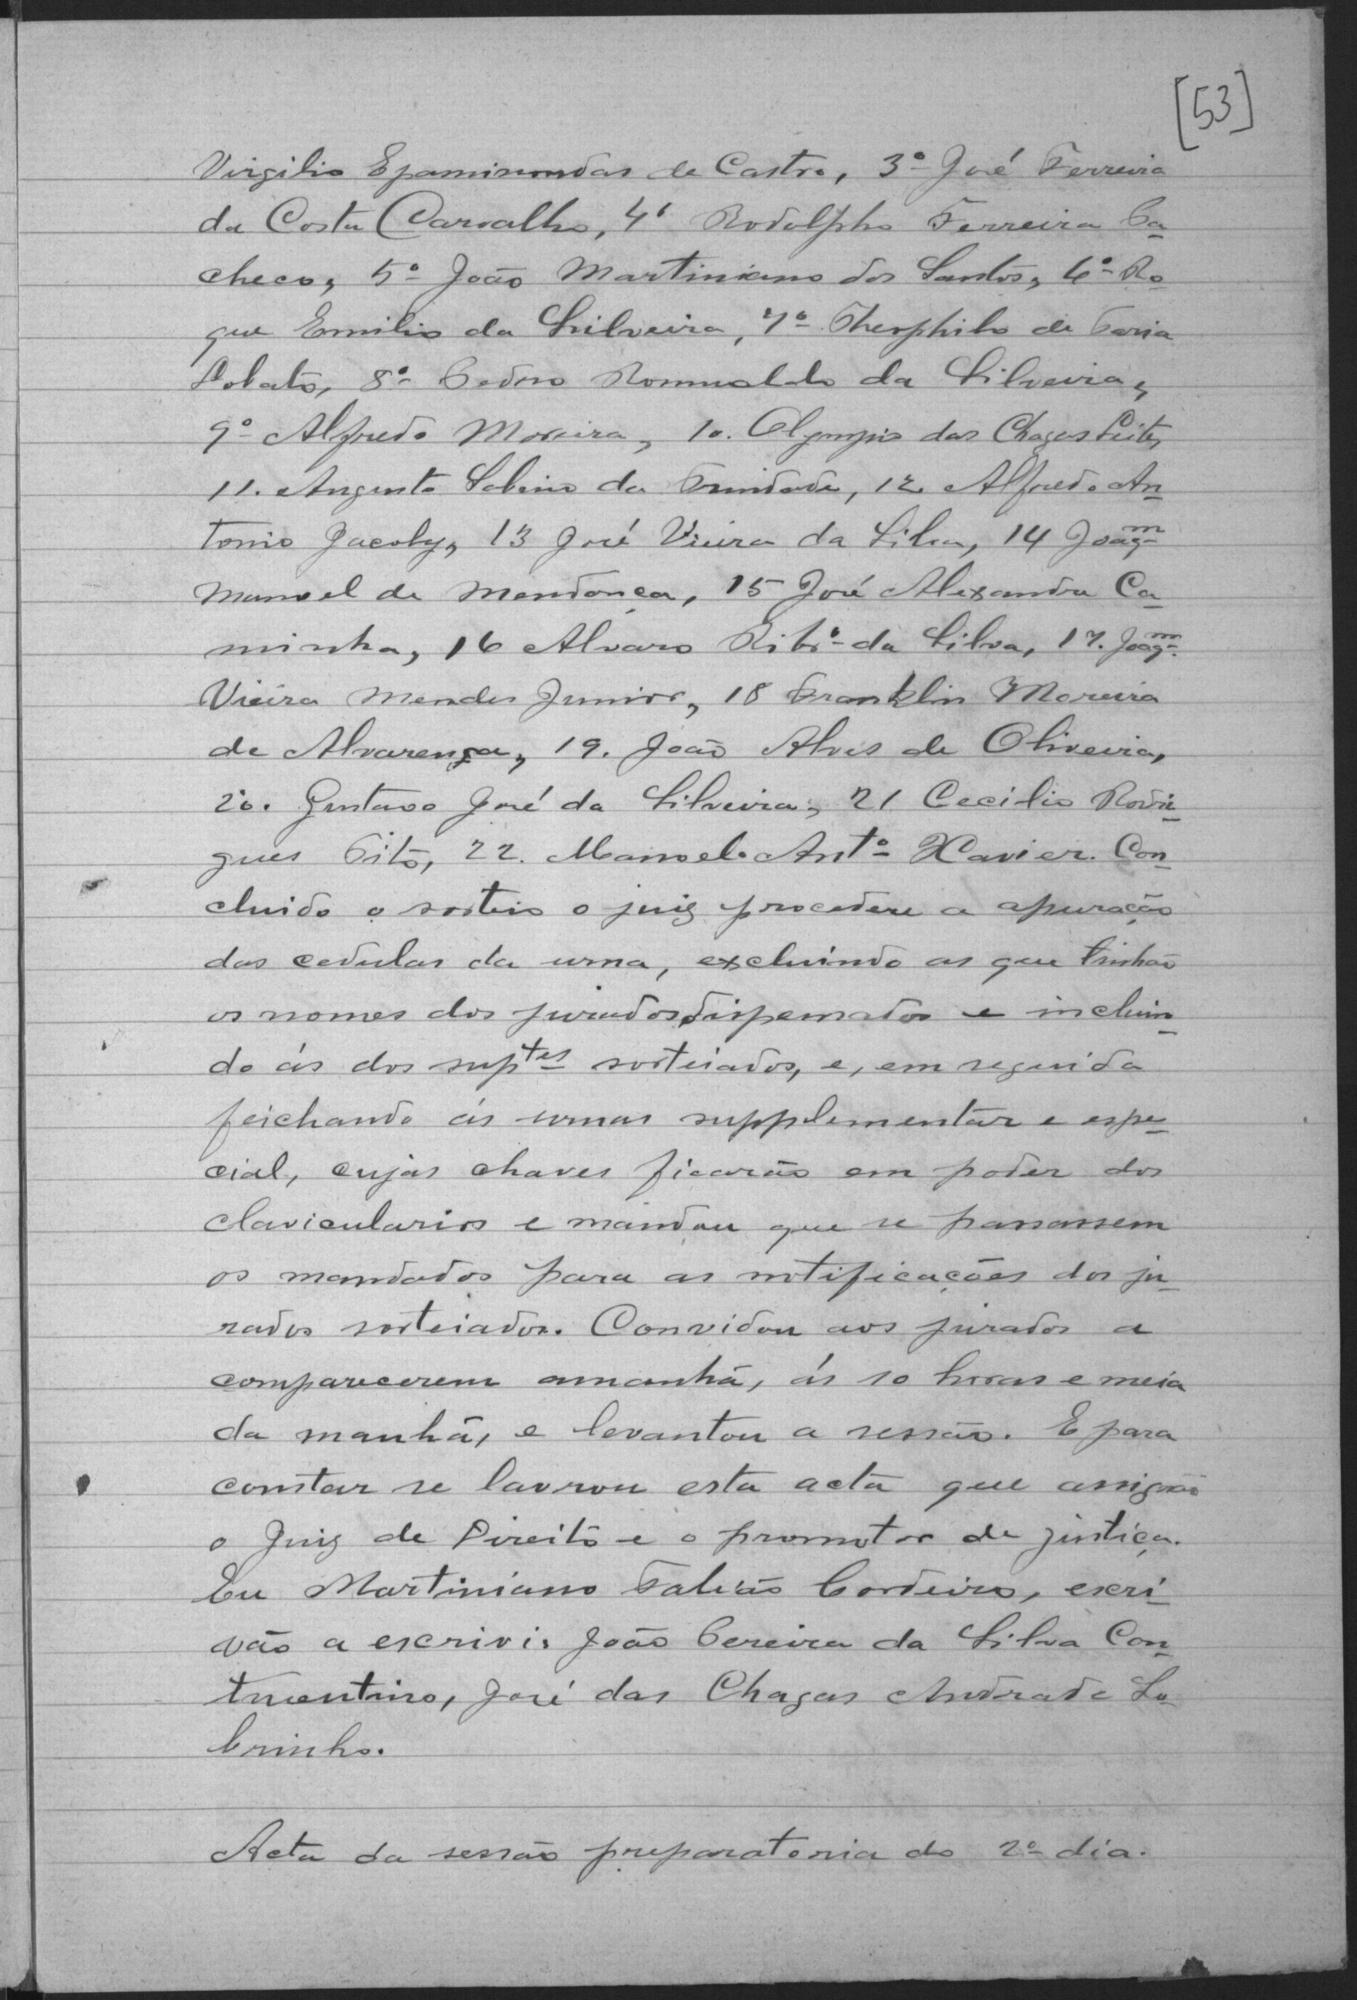 [53]
Virgilio Epaminondas de Castro, 3º José Ferreira
da Costa Carvalho, 4º Rodolpho Ferreira Pa-
checo, 5º João Martiniano dos Santos, 6º Ro-
que Emilio da Silveira, 7º Theophilo de Faria
Lobato, 8º Pedro Romualdo da Silveira,
9º Alfredo Moreira, 10. Olympio das Chagas Leite,
11. Augusto Sabino da Trindade, 12 Alfredo An-
tonio Jacoby, 13 José Vieira da Silva, 14 Joaqm
Manoel de Mendonça, 15 José Alexandre Ca-
minha, 16 Alvaro Ribrº da Silva, 17. Joaqm
Vieira Mendes Junior, 18 Franklin Moreira
de Alvarenga, 19. João Alves de Oliveira,
20. Gustavo José da Silveira, 21 Cecilio Rodri-
gues Pito, 22. Manoel Antº Xavier. Con-
cluido o sorteio o juiz procedeu a apuração
das cedulas da urna, excluindo as que tinhão
os nomes dos jurados dispensados e incluin-
do ás dos suptes sorteiados, e, em seguida
feichando ás urnas supplementar e espe-
cial, cujas chaves ficarão em poder dos
clavicularios e mandou que se passassem
os mandados para as notificações dos ju-
rados sorteiados. Convidou aos jurados a
comparecerem amanhã, ás 10 horas e meia
da manhã, e levantou a sessão. E para
constar se lavrou esta acta que assignão
o Juiz de Direito e o promotor de justiça.
Eu Martiniano Falcão Cordeiro, escri-
vão a escrivi. João Pereira da Silva Con-
tinentino, José das Chagas Andrade So-
brinho.
Acta da sessão preparatoria do 2º dia.